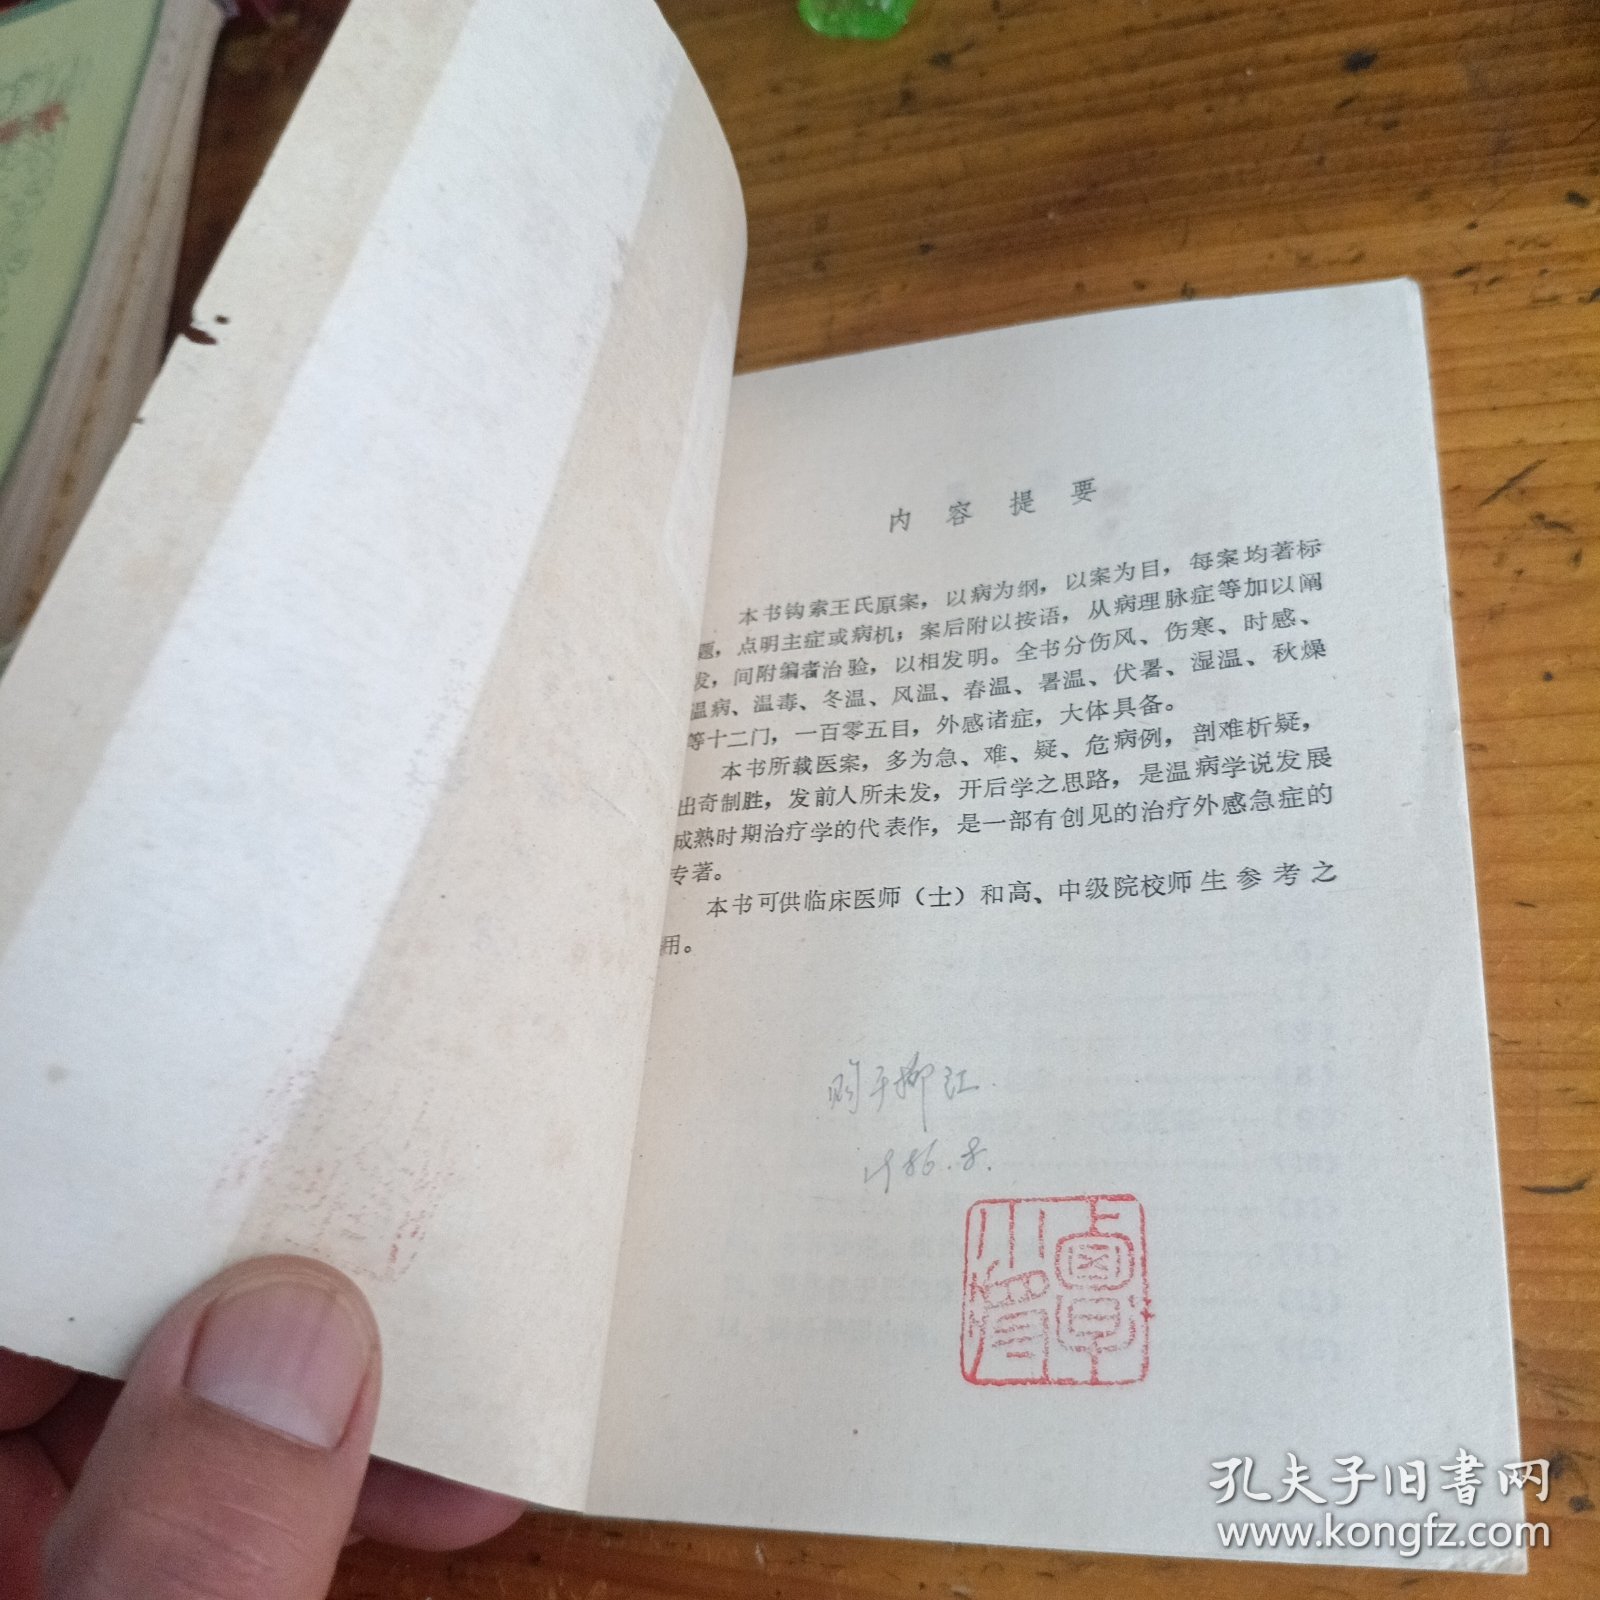 内容提要
本书钩索王氏原案，以病为纲，以案为目，每案均著标
题，点明主症或病机；案后附以按语，从病理脉症等加以阐
发，间附编者治验，以相发明。全书分伤风、伤寒、时感、
温病、温毒、冬温、风温、春温、暑温、伏暑、湿温、秋燥
等十二门，一百零五目，外感诸症，大体具备。
本书所载医案，多为急、难、疑、危病例，剖难析疑，
出奇制胜，发前人所未发，开后学之思路，是温病学说发展
成熟时期治疗学的代表作，是一部有创见的治疗外感急症的
专著。
本书可供临床医师（士）和高、中级院校师生参考之
用。
购于柳江.
1986.8.
孔夫子旧书网
www.kongfz.com